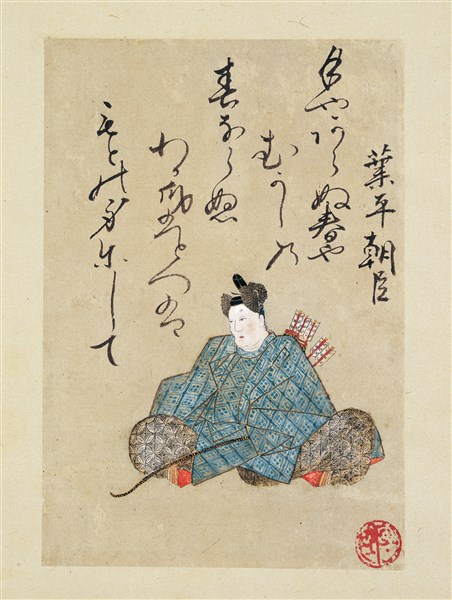 業平朝臣
月やあらぬ春や
むかしの
春ならぬ
わか身ひとつは
もとの身にして